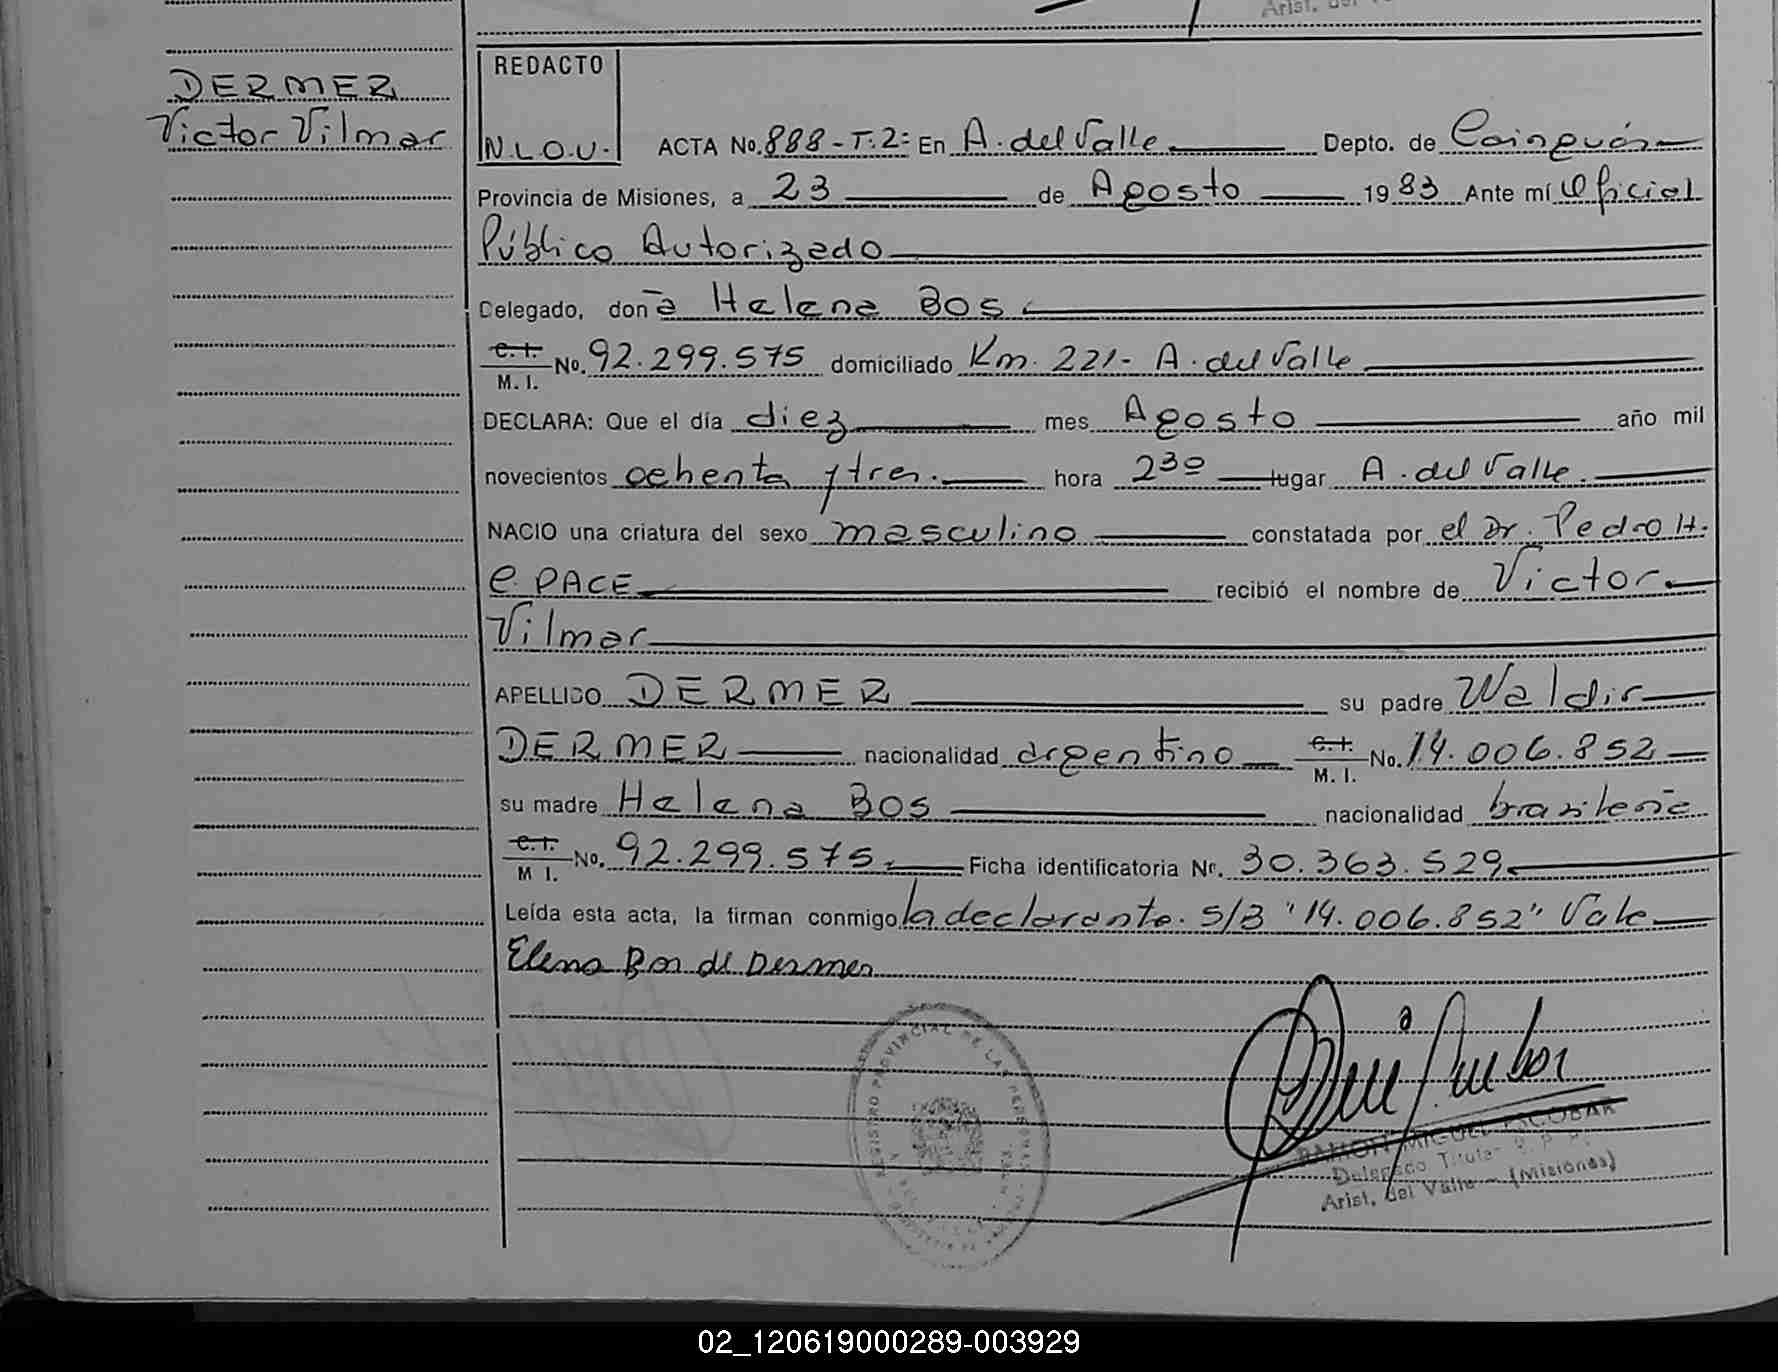 Arist. del V
DERMER
Victor Vilmar
REDACTO
N.L.O.U.
ACTA No. 888-T.2: En A. del Valle Depto. de Cainguás
Provincia de Misiones, a 23 de Agosto 1983 Ante mí Oficial
Público Autorizado
Delegado, doña Helena BOS
C.I. M.I. No. 92.299.575 domiciliado Km. 221- A. del Valle
DECLARA: Que el día diez mes Agosto año mil
novecientos ochenta y tres. hora 2³⁰ lugar A. del Valle.
NACIO una criatura del sexo masculino constatada por el Dr. Pedro H.
e. PACE recibió el nombre de Victor
Vilmar
APELLIDO DERMER su padre Waldir
DERMER nacionalidad argentino C.I. M.I. No. 14.006.852
su madre Helena BOS nacionalidad brasileña
C.I. M I. No. 92.299.575. Ficha identificatoria Nº. 30.363.529
Leída esta acta, la firman conmigo la declarante. S/B "14.006.852" Vale
Elena Bos de Dermer
REGISTRO PROVINCIAL DE LAS PERSONAS
RAMON MIGUEL ESCOBAR
Delegado Titular R. P. P.
Arist. del Valle - (Misiones)
02_120619000289-003929